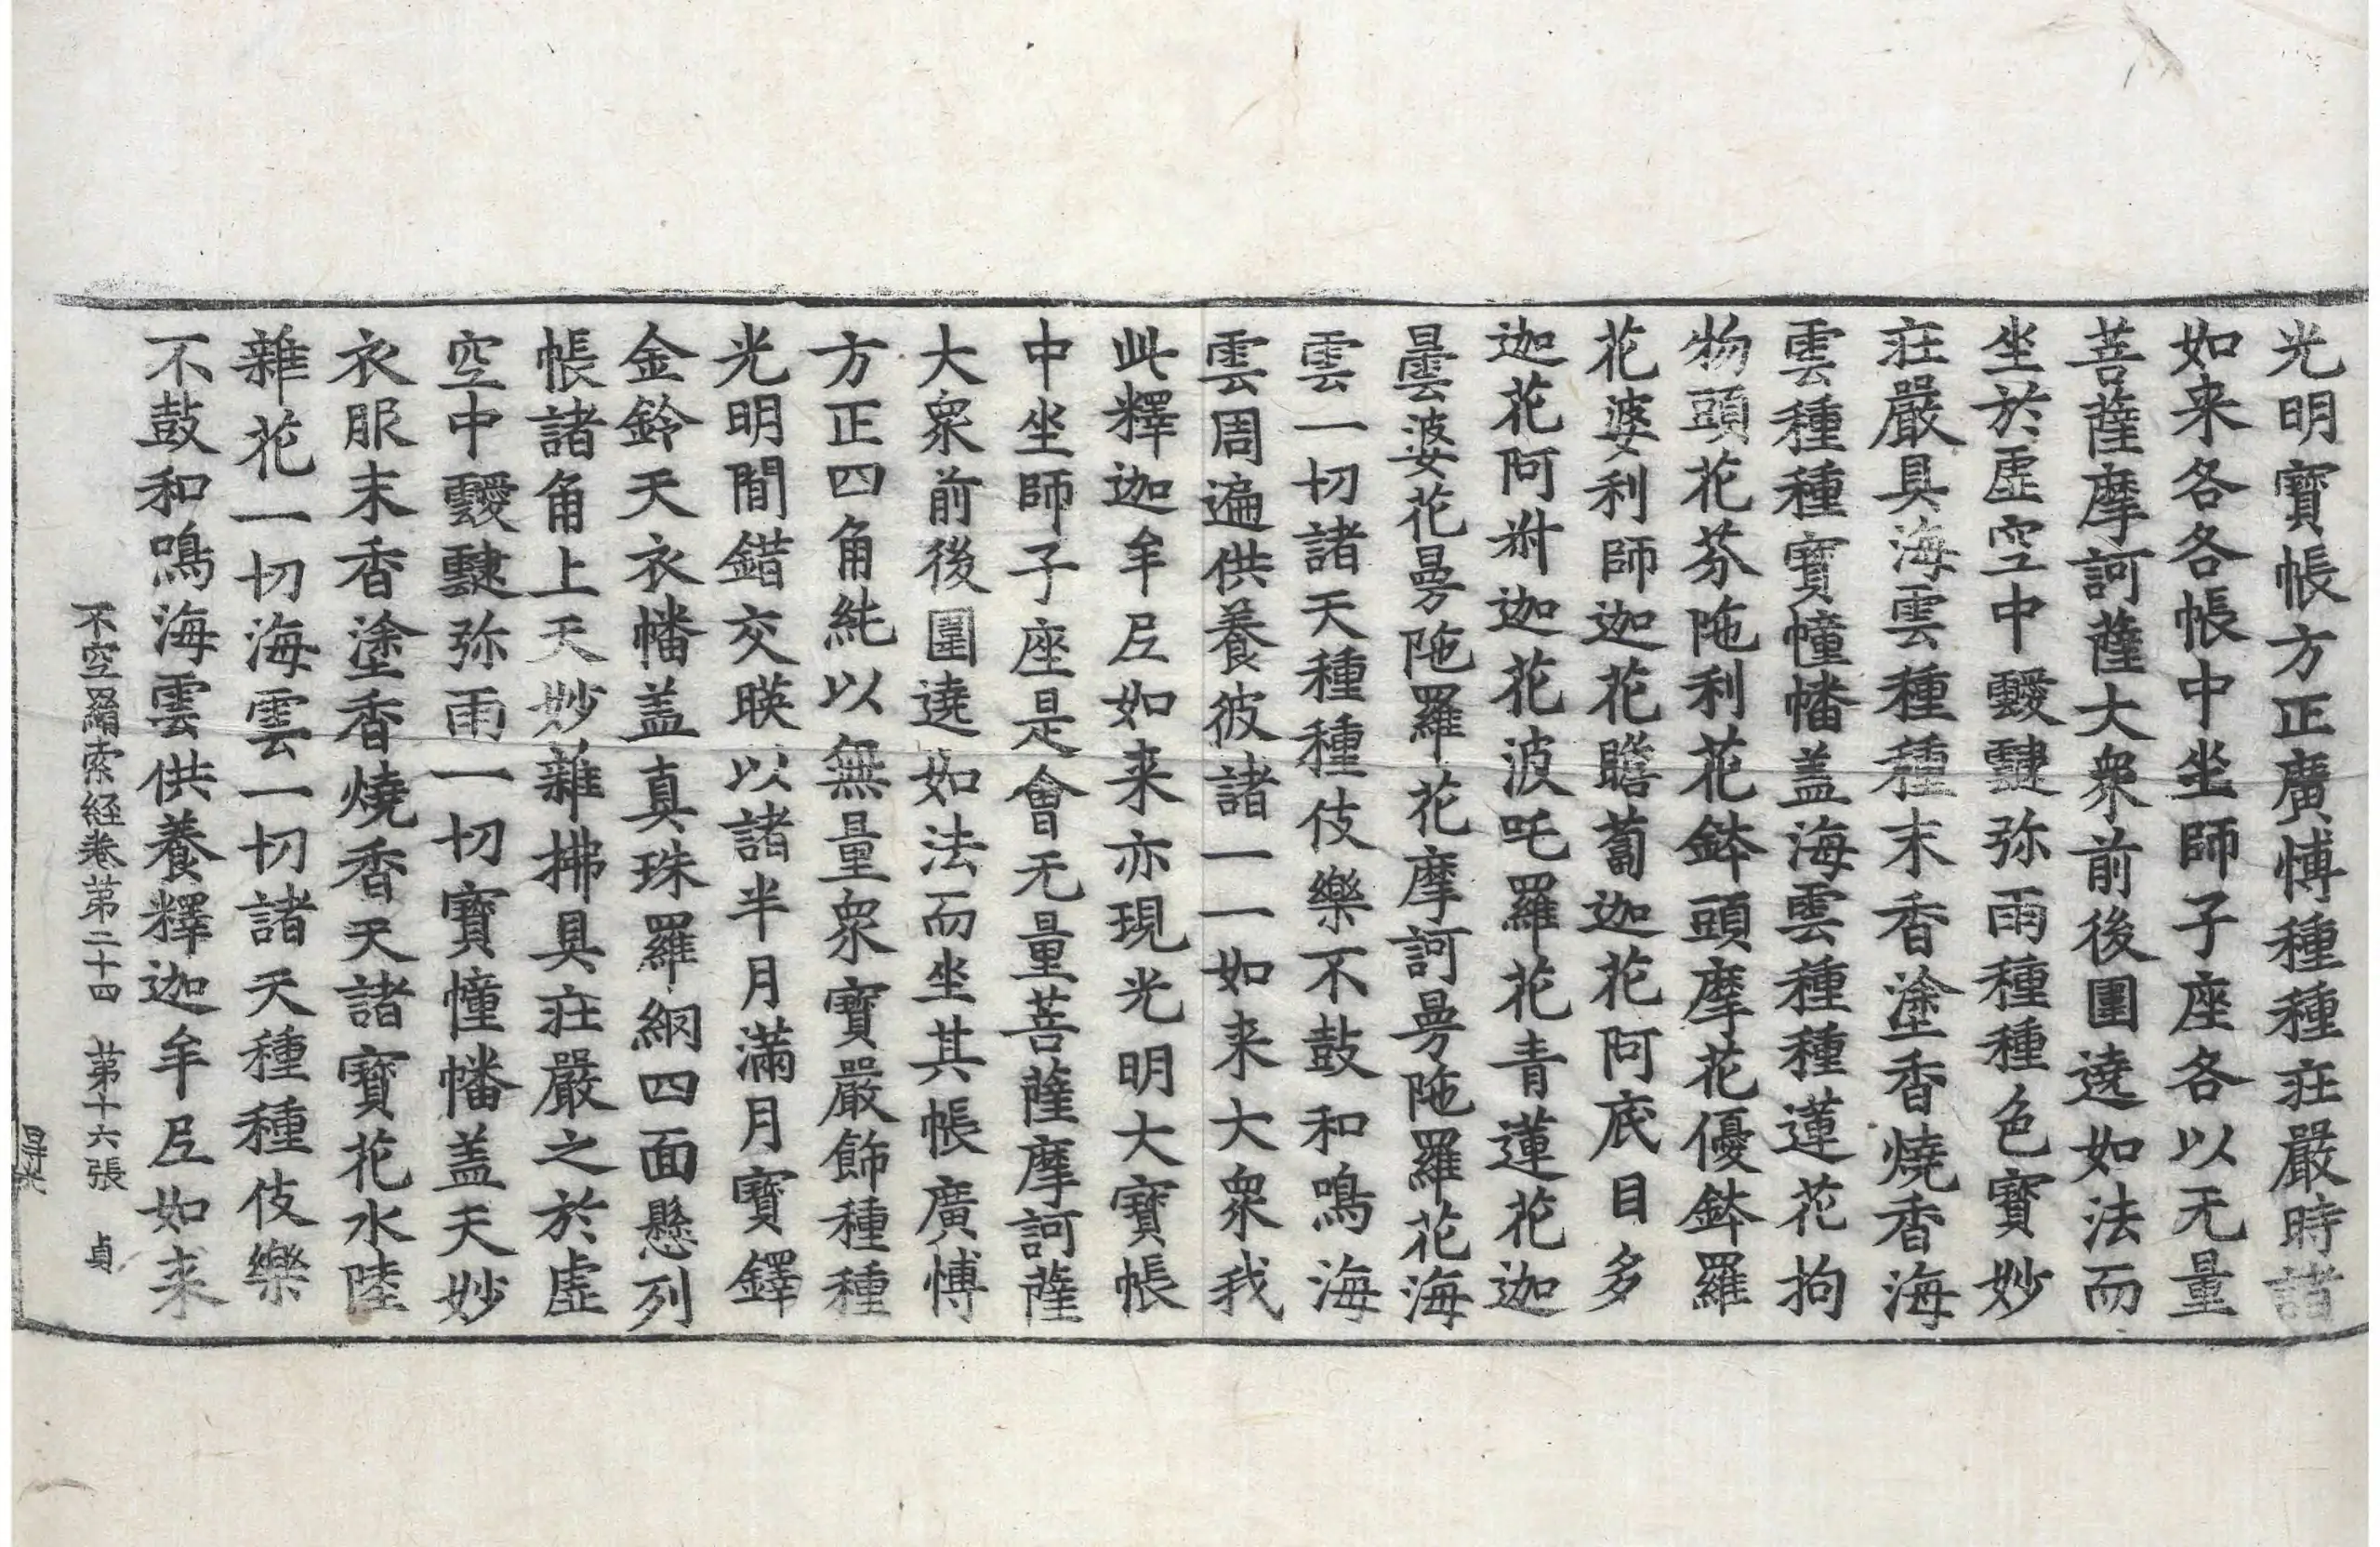 光明寶帳方正廣愽種種莊嚴時諸
如来各各帳中坐師子座各以无量
菩薩摩訶薩大衆前後圍遶如法而
坐於虛空中靉靆弥雨種種色寶妙
莊嚴具海雲種種末香塗香燒香海
雲種種寶幢幡盖海雲種種蓮花拘
物頭花芬陁利花鉢頭摩花優鉢羅
花婆利師迦花瞻蔔迦花阿底目多
迦花阿濧迦花波吒羅花青蓮花迦
曇婆花曼陁羅花摩訶曼陁羅花海
雲一切諸天種種伎樂不鼓和鳴海
雲周遍供養彼諸一一如来大衆我
此釋迦牟𡰱如来亦現光明大寶帳
中坐師子座是會无量菩薩摩訶薩
大衆前後圍遶如法而坐其帳廣愽
方正四角純以無量衆寶嚴飾種種
光明閒錯交暎以諸半月滿月寶鐸
金鈴天衣幡盖真珠羅網四面懸列
帳諸角上天妙雜拂具莊嚴之於虛
空中靉靆弥雨一切寶幢幡盖天妙
衣服末香塗香燒香天諸寶花水陸
雜花一切海雲一切諸天種種伎樂
不鼓和鳴海雲供養釋迦牟𡰱如来
不空羂索経卷苐二十四 苐十六張 貞